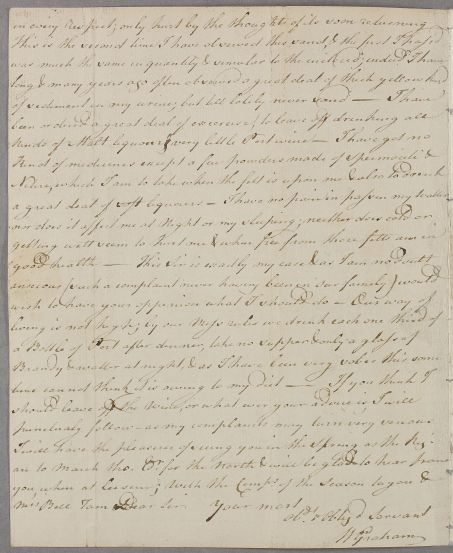 in every respect; only hurt by the thoughts of its soon returning
This is the second time I have observed this sand, & the first I passed
was much the same in quantity & similar to the inclosed; indeed I have
long & many years ago often observed a great deal of thick yellow kind
of sediment in my urine; but till lately never sand — I have
been ordered a great deal of exercise, to leave off drinking all
kinds of Malt liquors & very little Port wine — I have got no
kind of medicines except a few powders made of Spermaceti &
Nitre, which I am to take when the fitt is upon me & also to drink
a great deal of liquors — I have no pain in passing my water
nor does it affect me at Night or my sleeping; neither does cold or
getting wett seem to hurt me & when free from those fitts am in
good health — This Sir is exactly my case & as I am no doubt
anxious (such a complaint never having been in our family) would
wish to have your opinion what I should do — Our way of
living is not high; by our Mess rules we drink each one third of
a Bottle of Port after dinner, take no supper & only a glass of
Brandy & water at night, & as I have been very sober this some
time cannot think tis owing to my diet — If you think I
should leave off the Wine, or what ever your advice is I will
punctually follow — as my complaints may turn very serious
I will have the pleasure of seeing you in the Spring as the Reg:
are to march tho. for the North & will be glad to hear from
you when at leisure; with the Comps. of the Season to you &
Mrs Bell I am Dear Sir Your most
Obt. & Oblig'd Servant
Graham